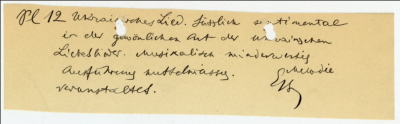 Pl 12 Ukrainisches Lied. Süsslich sentimental
in der gewöhnlichen Art der ukrainischen
Liebeslieder. Musikalisch minderwertig
Ausführung mittelmässig. Melodie
verunstaltet.